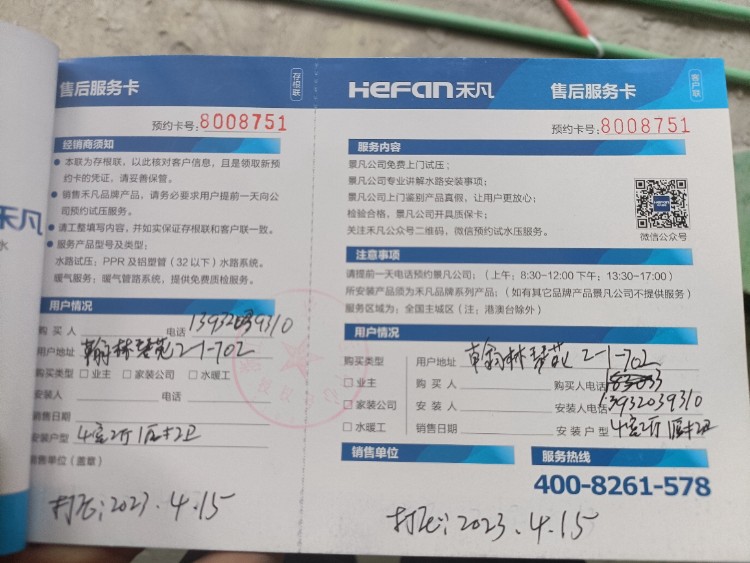 售后服务卡
存根联
预约卡号:8008751
经销商须知
● 本联为存根联，以此核对客户信息，且是领取新预
约卡的凭证，请妥善保管。
● 销售禾凡品牌产品，请务必要求用户提前一天向公
司预约试压服务。
● 请工整填写内容，并如实保证存根联和客户联一致。
● 服务产品型号及类型：
水路试压：PPR及铝塑管（32以下）水路系统。
暖气服务：暖气管路系统，提供免费质检服务。
用户情况
购买人 电话 13932039310
用户地址 翰林 2-1-702
购买类型 □业主 □家装公司 □水暖工
安装人 电话
销售日期
安装户型 4室2厅1厨2卫
销售单位（盖章）
打压：2023.4.15
禾凡
水
HEFAN禾凡
售后服务卡
客户联
预约卡号:8008751
服务内容
景凡公司免费上门试压；
景凡公司专业讲解水路安装事项；
景凡公司上门鉴别产品真假，让用户更放心；
检验合格，景凡公司开具质保卡；
关注禾凡公众号二维码，微信预约试水压服务。
HEFAN
微信公众号
注意事项
请提前一天电话预约景凡公司；（上午：8:30-12:00 下午：13:30-17:00）
所安装产品须为禾凡品牌系列产品；（如有其它品牌产品景凡公司不提供服务）
服务区域为：全国主城区（注：港澳台除外）
用户情况
购买类型 用户地址 翰林 2-1-702
□业主 购买人 购买人电话
□家装公司 安装人 安装人电话 13932039310
□水暖工 销售日期 安装户型 4室2厅1厨2卫
销售单位
服务热线
400-8261-578
打压：2023.4.15